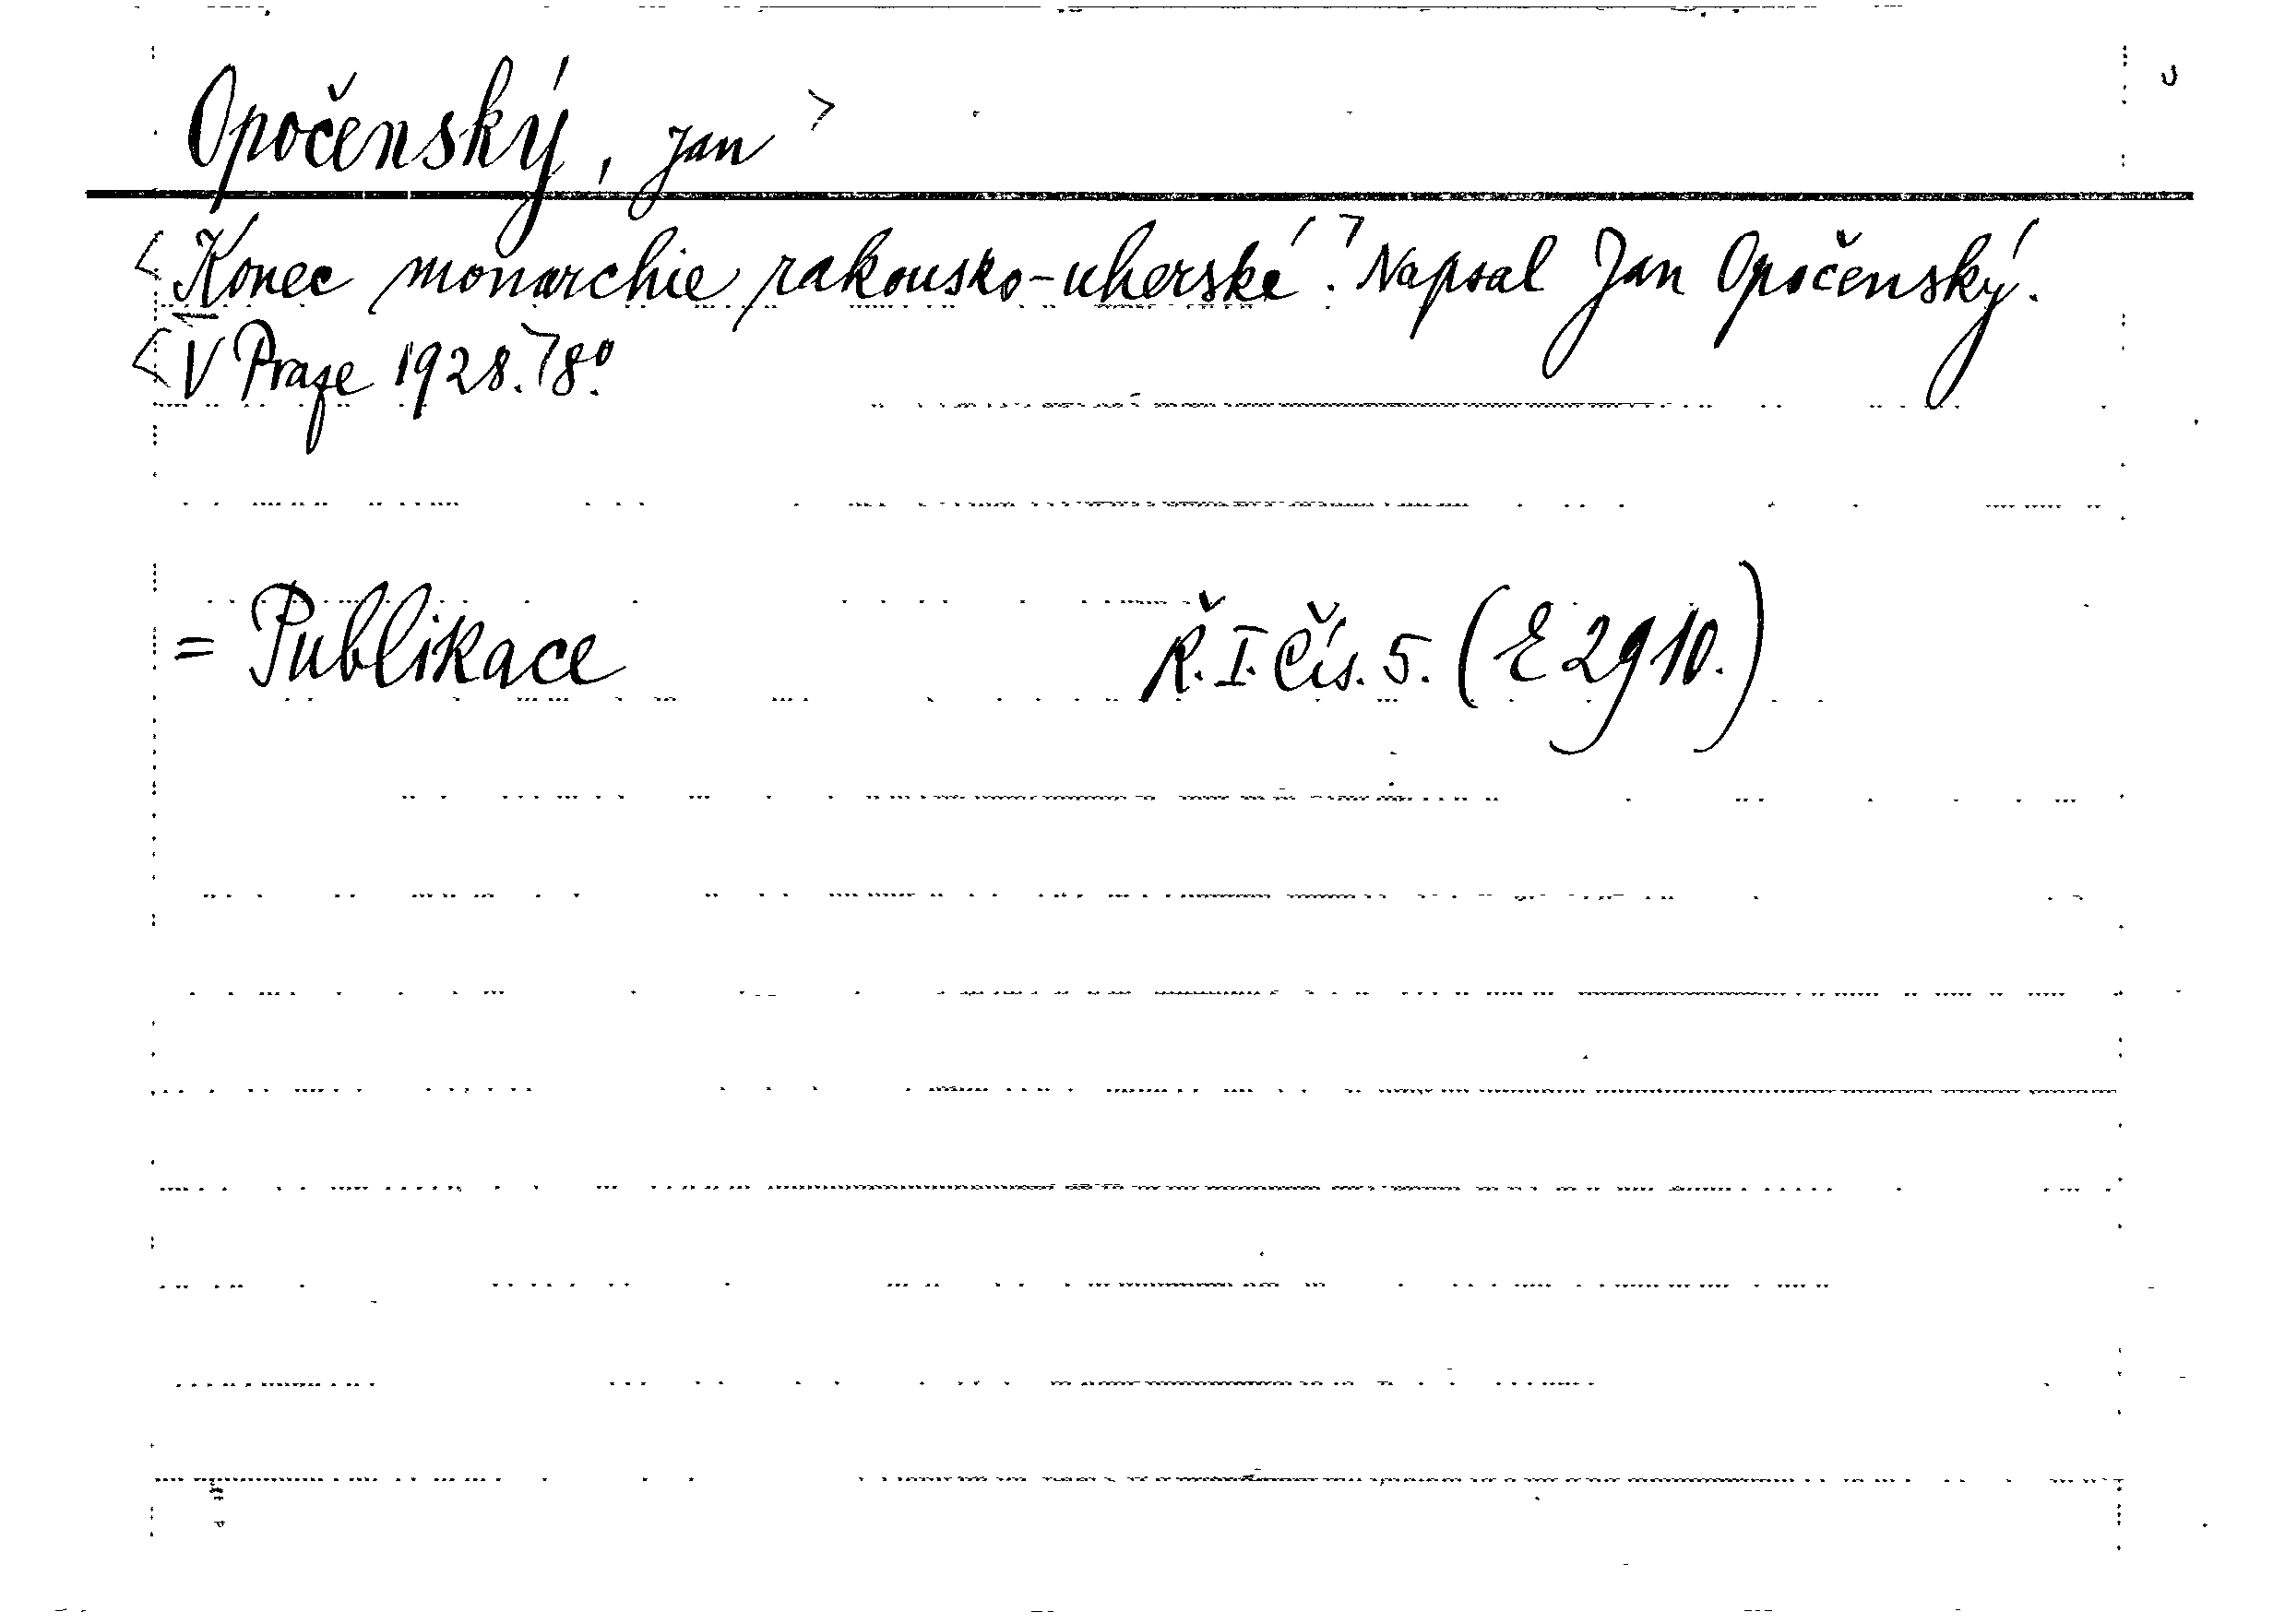 Opočenský, Jan >
<Konec monarchie rakousko-uherské.> Napsal Jan Opočenský.
<V Praze 1928.> 8º.
= Publikace Ř. I. Čís. 5. (E 2910.)